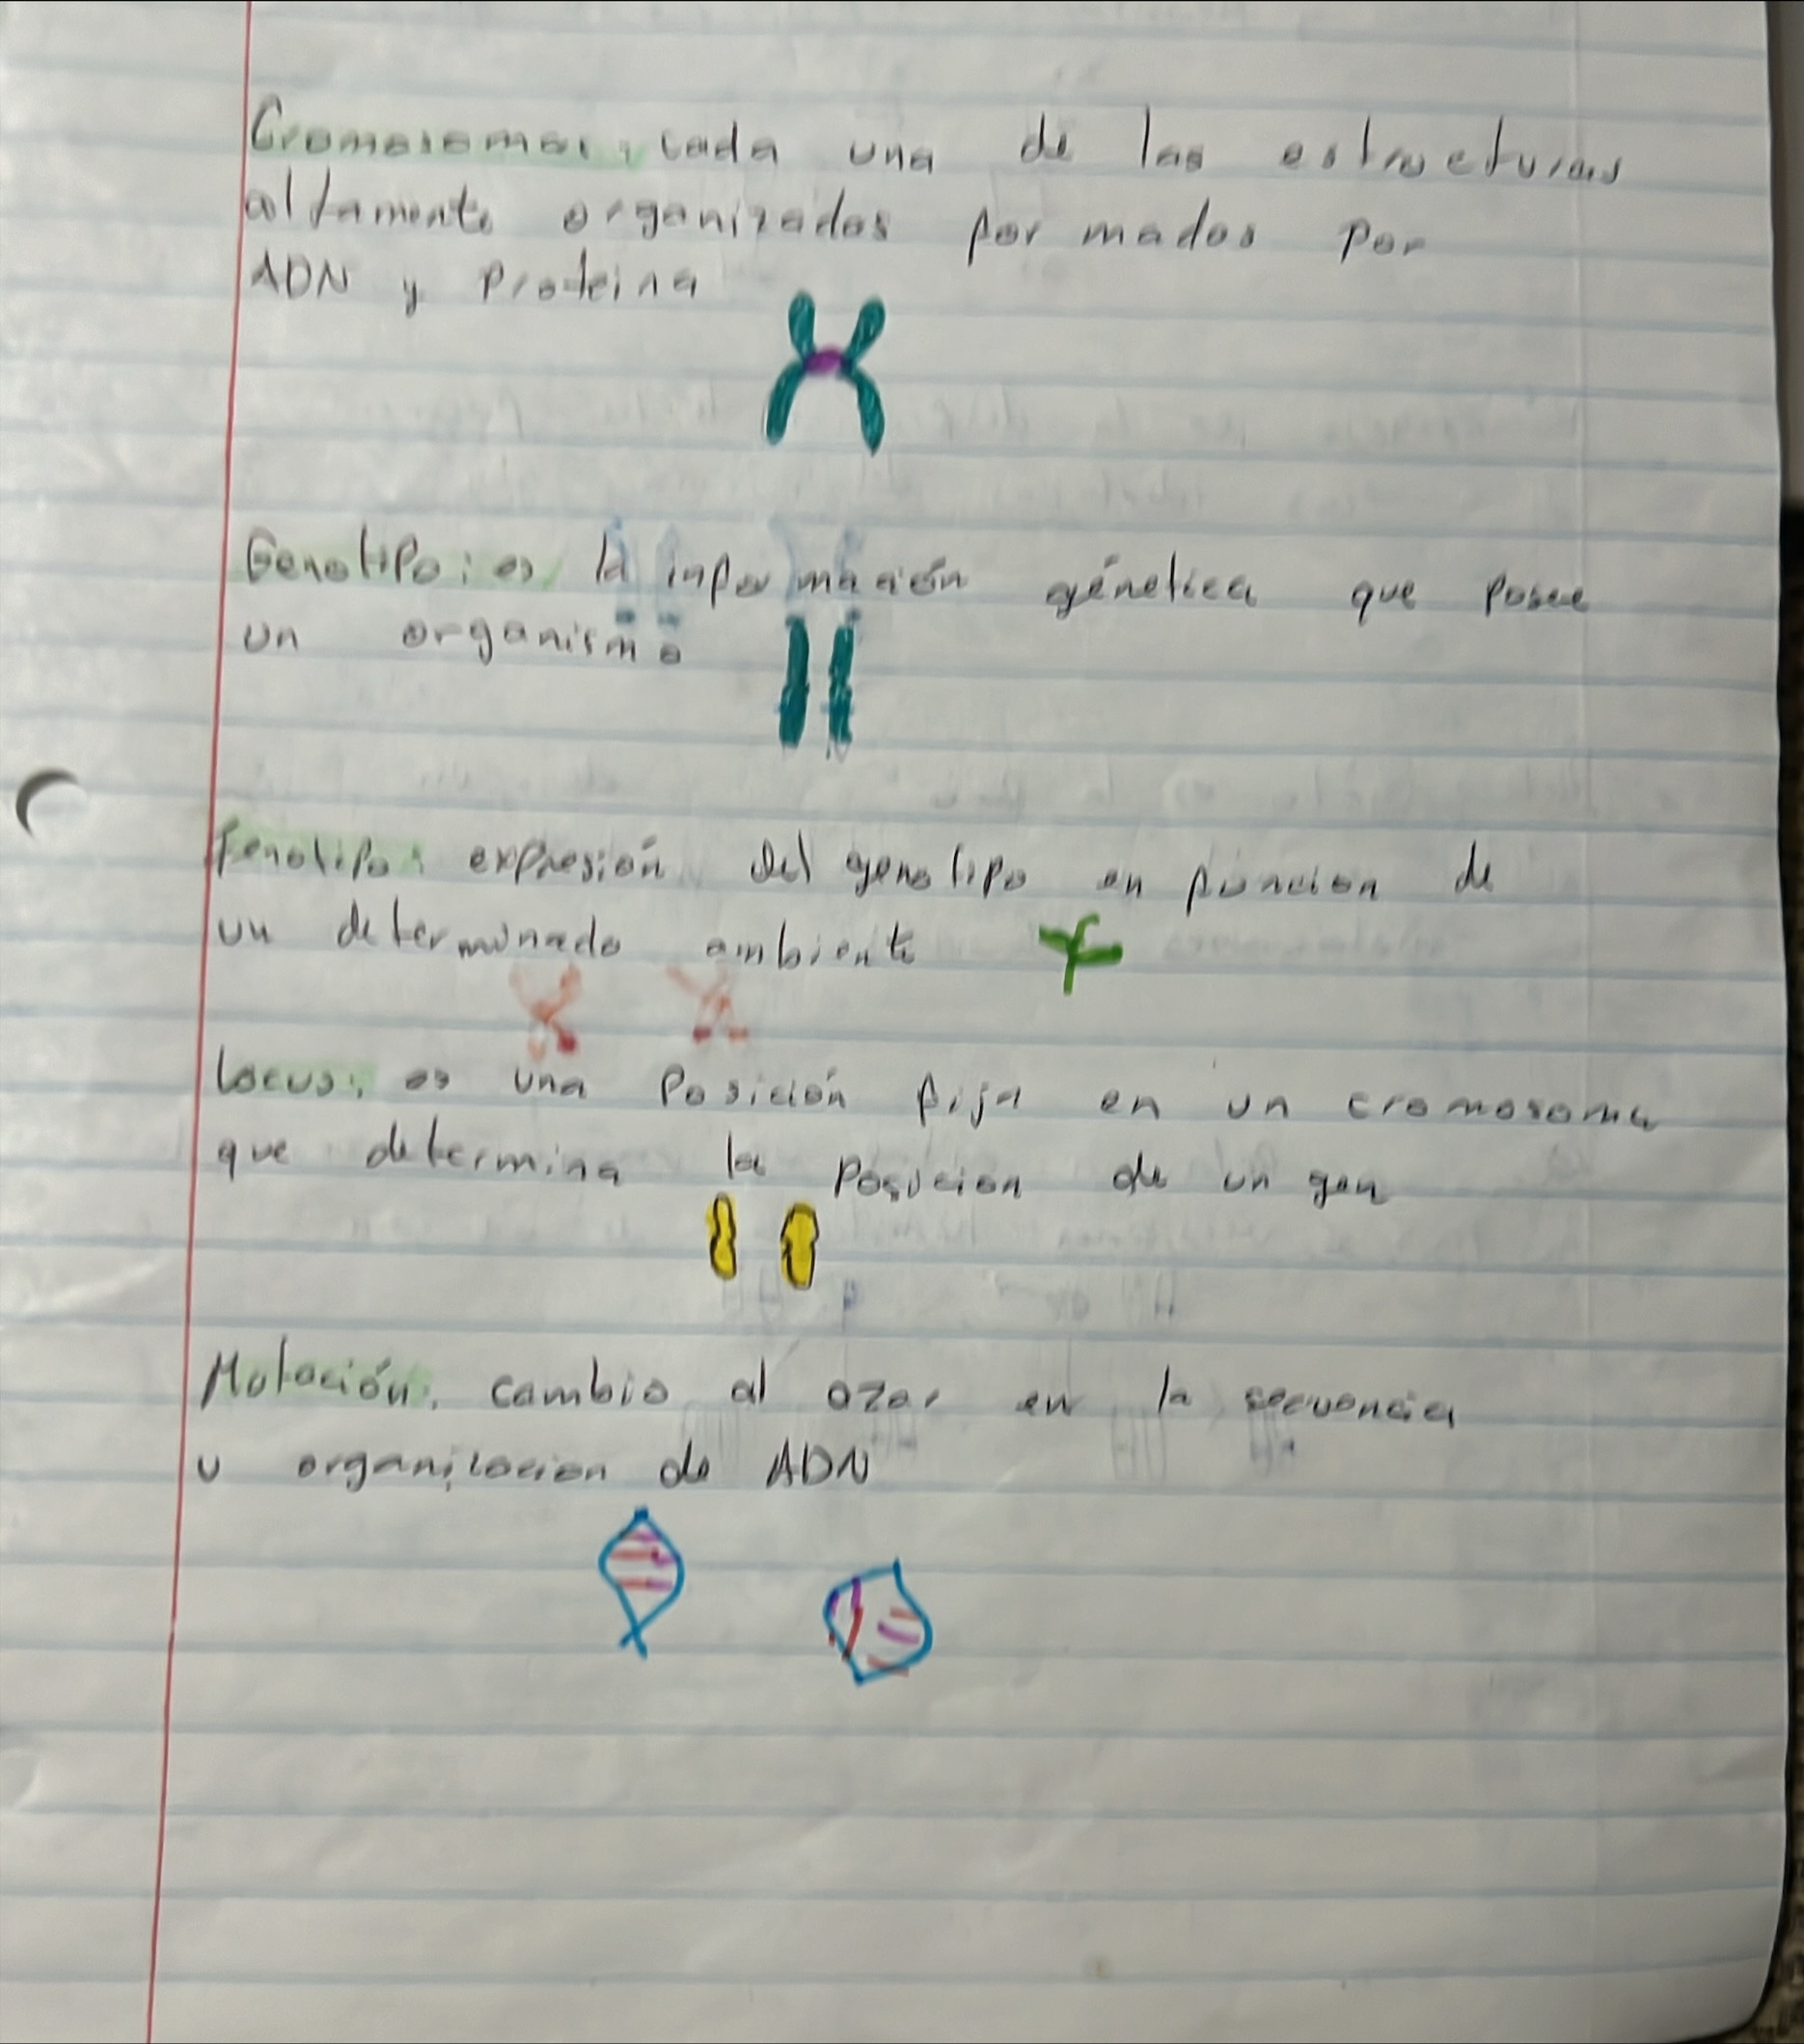 Cromosomas: cada una de las estructuras
altamente organizadas formados por
ADN y Proteina
Genotipo: es la información génetica que posee
un organismo
Fenotipo: expresión del genotipo en función de
un determinado ambiente
Locus: es una Posición fija en un cromosoma
que determina la Posición de un gen
Mutación: cambio al azar en la secuencia
u organización de ADN